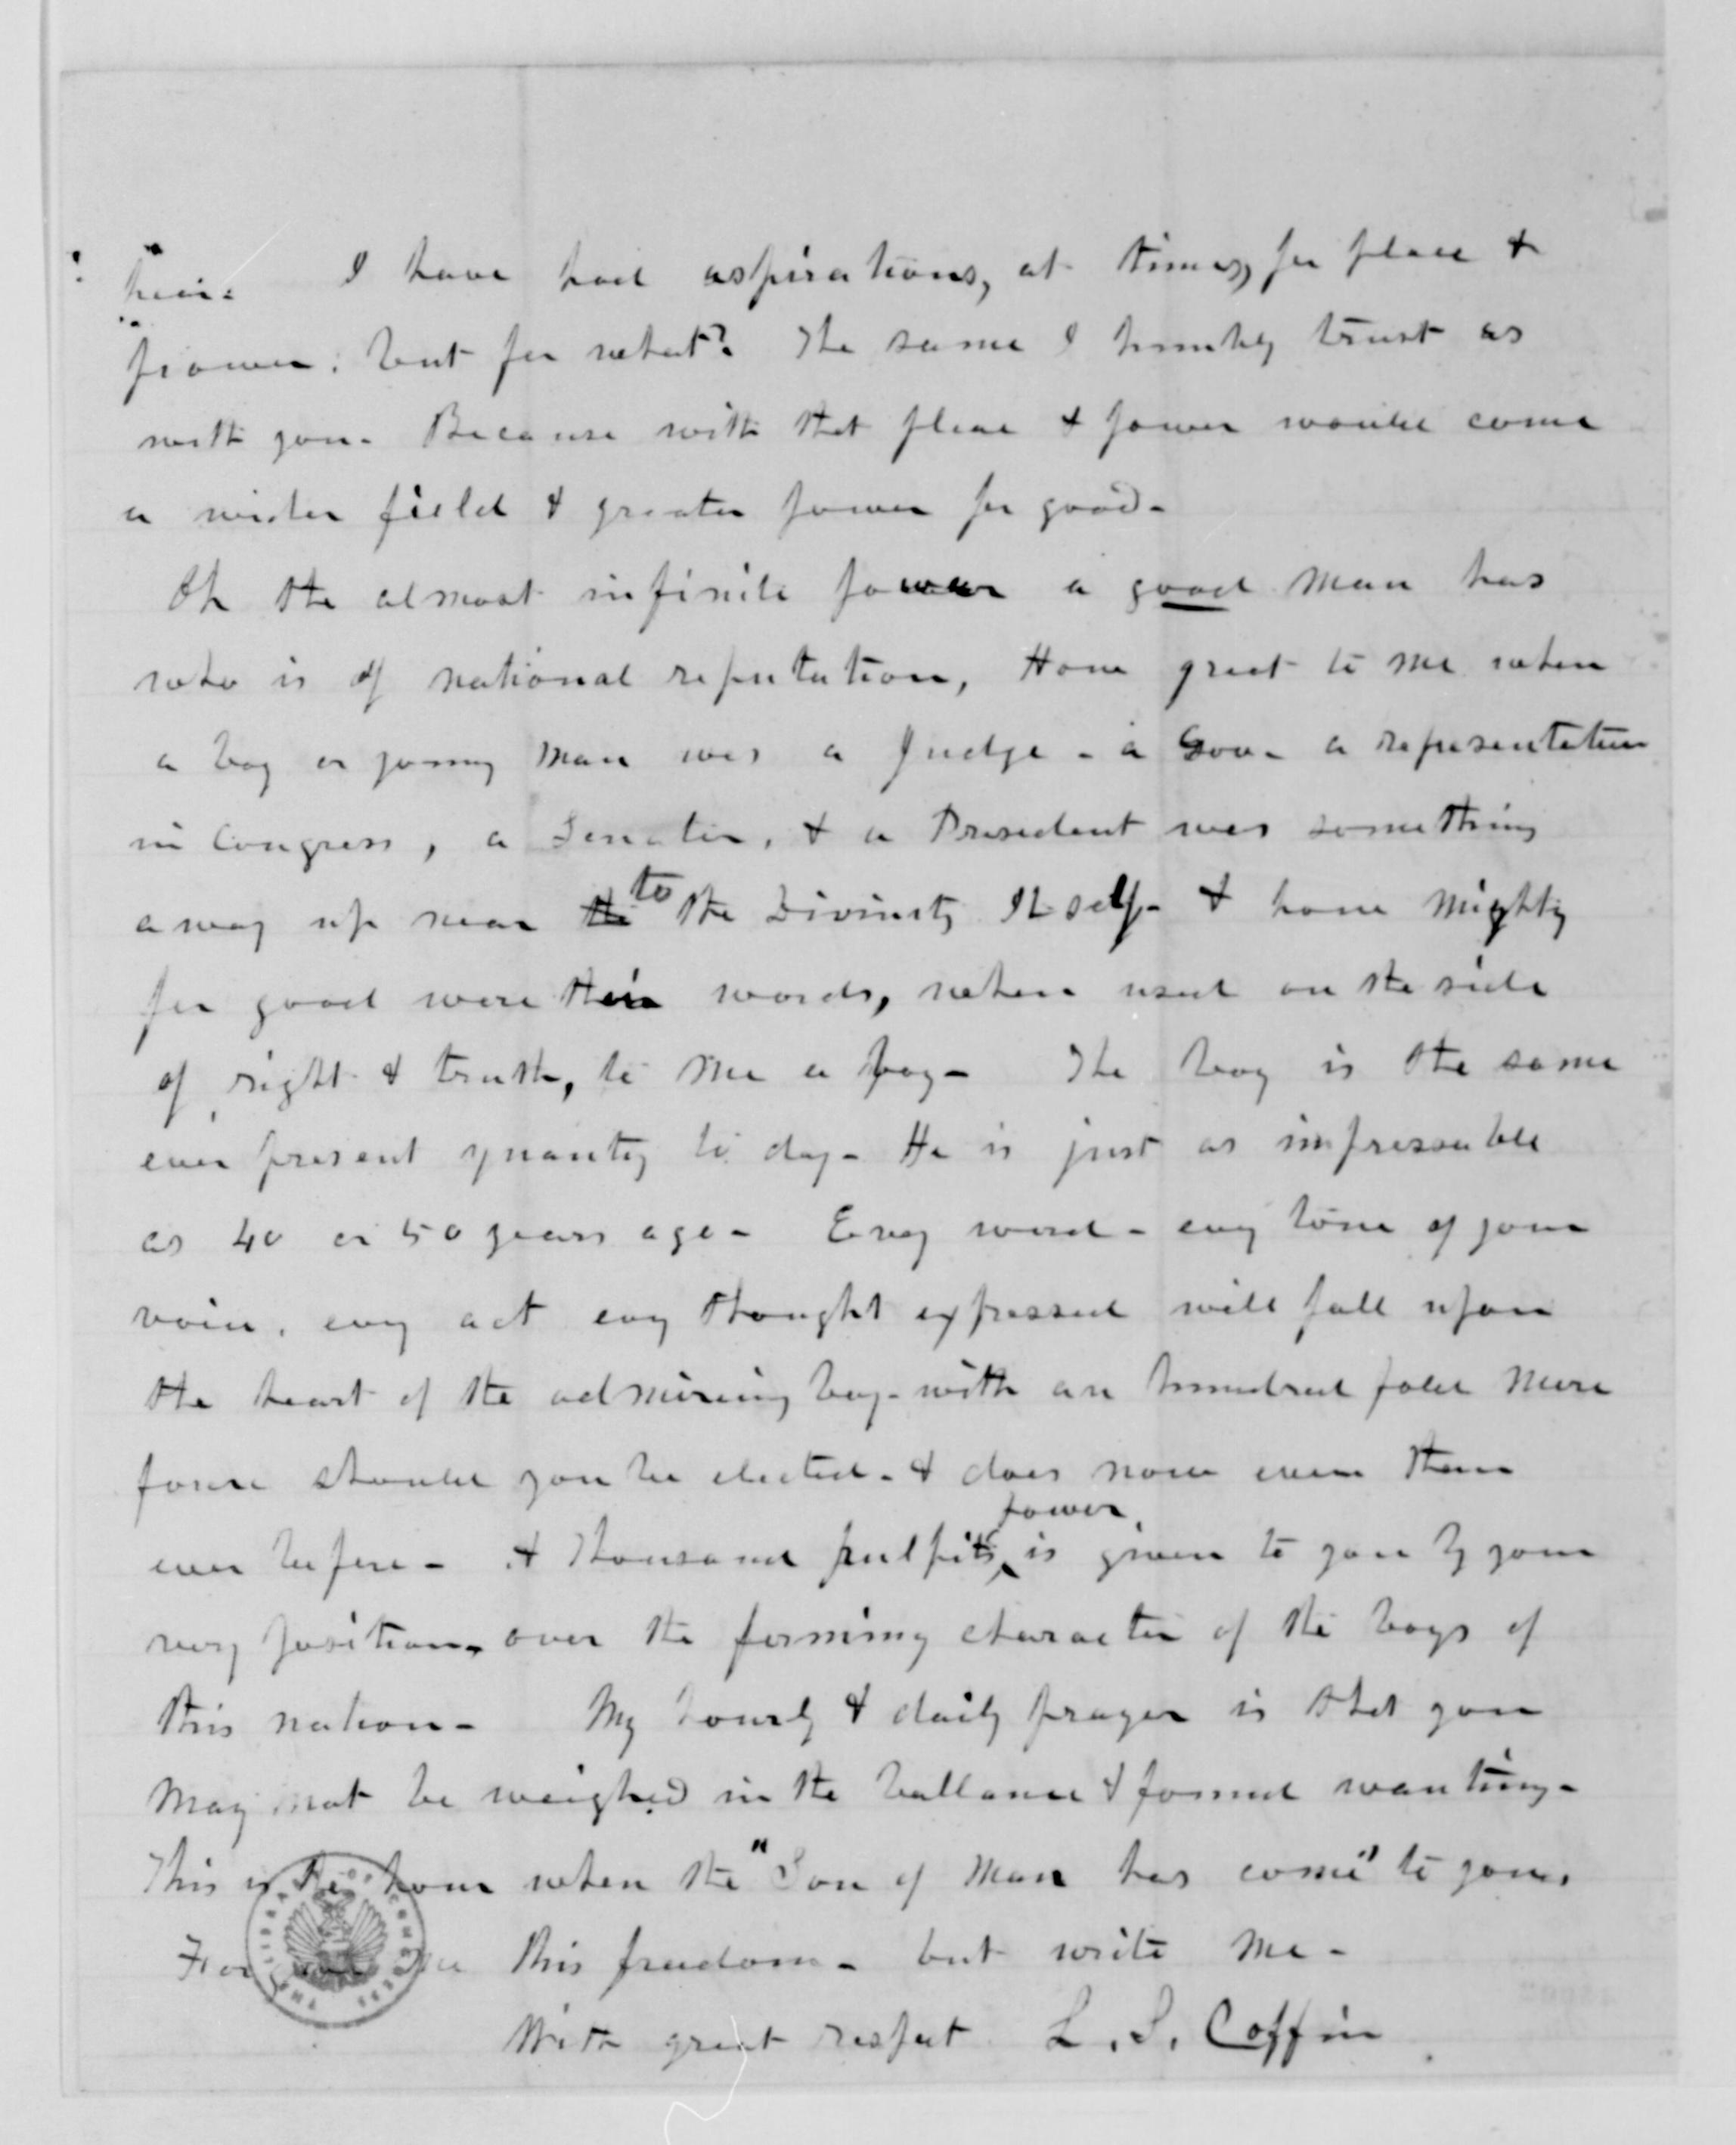 hear. I have had aspirations, at times, for place &
power; but for what? The same I humbly trust as
with you. Because with that place & power would come
a wider field & greater power for good-
Oh the almost infinite power a good man has
who is of national reputation, How great to me when
a boy or young man was a Judge - a Gov - a representative
in Congress, a Senator, & a President was something
away up near the to the Divinity Itself - & how mighty
for good were their words, when used on the side
of right & truth, to me a boy - The boy is the same
ever present quantity to day - He is just as impressable
as 40 or 50 years ago - Every word - evry tone of your
voice, evry act evry thought expressed will fall upon
the heart of the admiring boy - with an hundred fold more
force should you be elected - & does now even than
ever before - A thousand pulpits power is given to you by your
very position, over the forming character of the boys of
this nation - My hourly & daily prayer is that you
may not be weighed in the ballance & found wanting -
This is the hour when the "Son of Man has come" to you.
Forgive me this freedom - but write me -
With great respect L. S. Coffin
THE LIBRARY OF CONGRESS